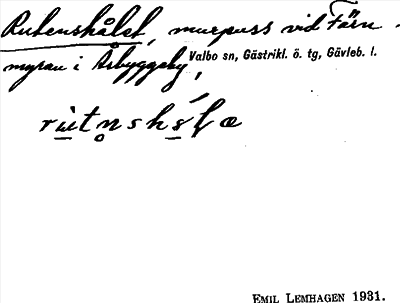 Rutenshålet, murpuss vid Färn-
myran i Åbyggeby,
Valbo sn, Gästrikl. ö. tg, Gävleb. l.
EMIL LEMHAGEN 1931.